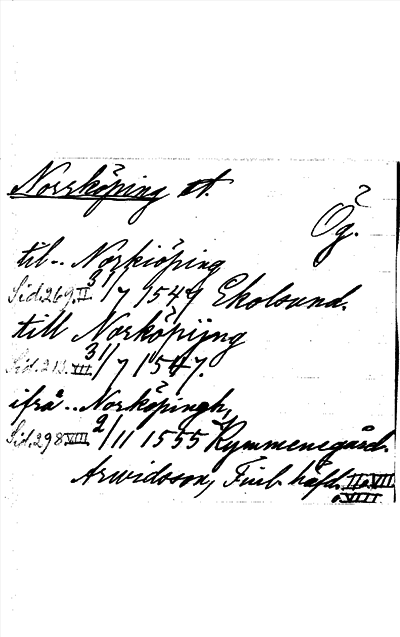 Norrköping st.
Ög.
til.. Norkiöping
Sid. 269. II. 31/7 1549 Ekolsund.
till Norköpijng
Sid. 213. VII. 31/7 1547.
ifrå.. Norköpingh,
Sid. 298 VIII. 2/11 1555 Kymmenegård.
Arwidsson, Finl. häfd. II o. VII
o. VIII.